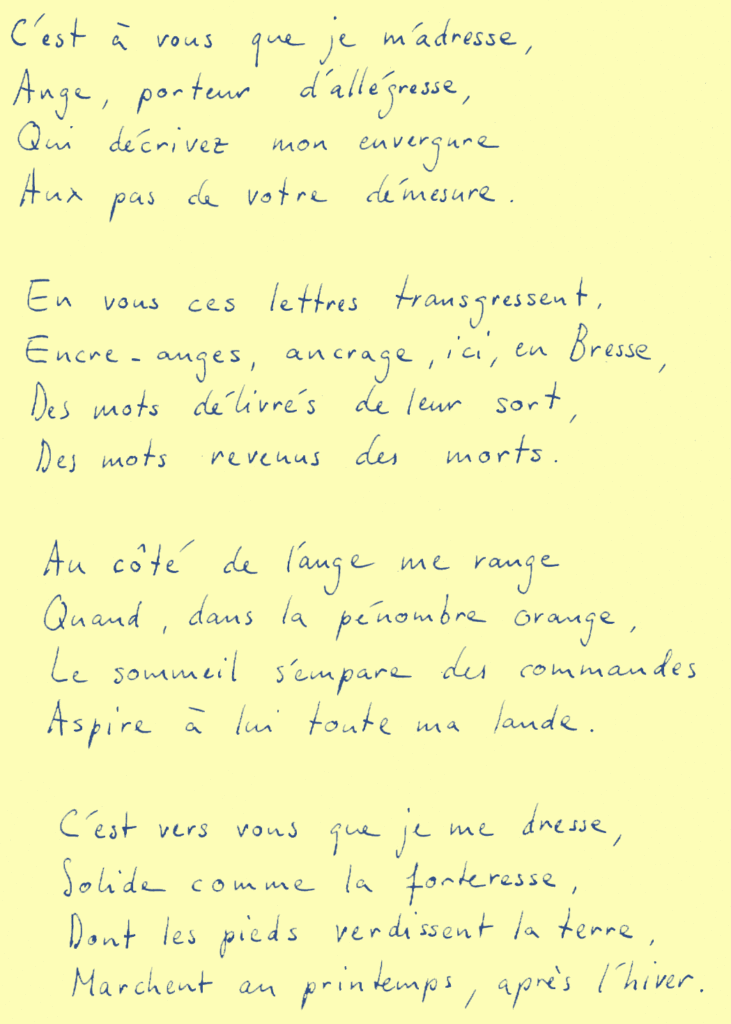 C'est à vous que je m'adresse,
Ange, porteur d'allégresse,
Qui décrivez mon envergure
Aux pas de votre démesure.
En vous ces lettres transgressent,
Encre-anges, ancrage, ici, en Bresse,
Des mots délivrés de leur sort,
Des mots revenus des morts.
Au côté de l'ange me range
Quand, dans la pénombre orange,
Le sommeil s'empare des commandes
Aspire à lui toute ma lande.
C'est vers vous que je me dresse,
Solide comme la forteresse,
Dont les pieds verdissent la terre,
Marchent au printemps, après l'hiver.